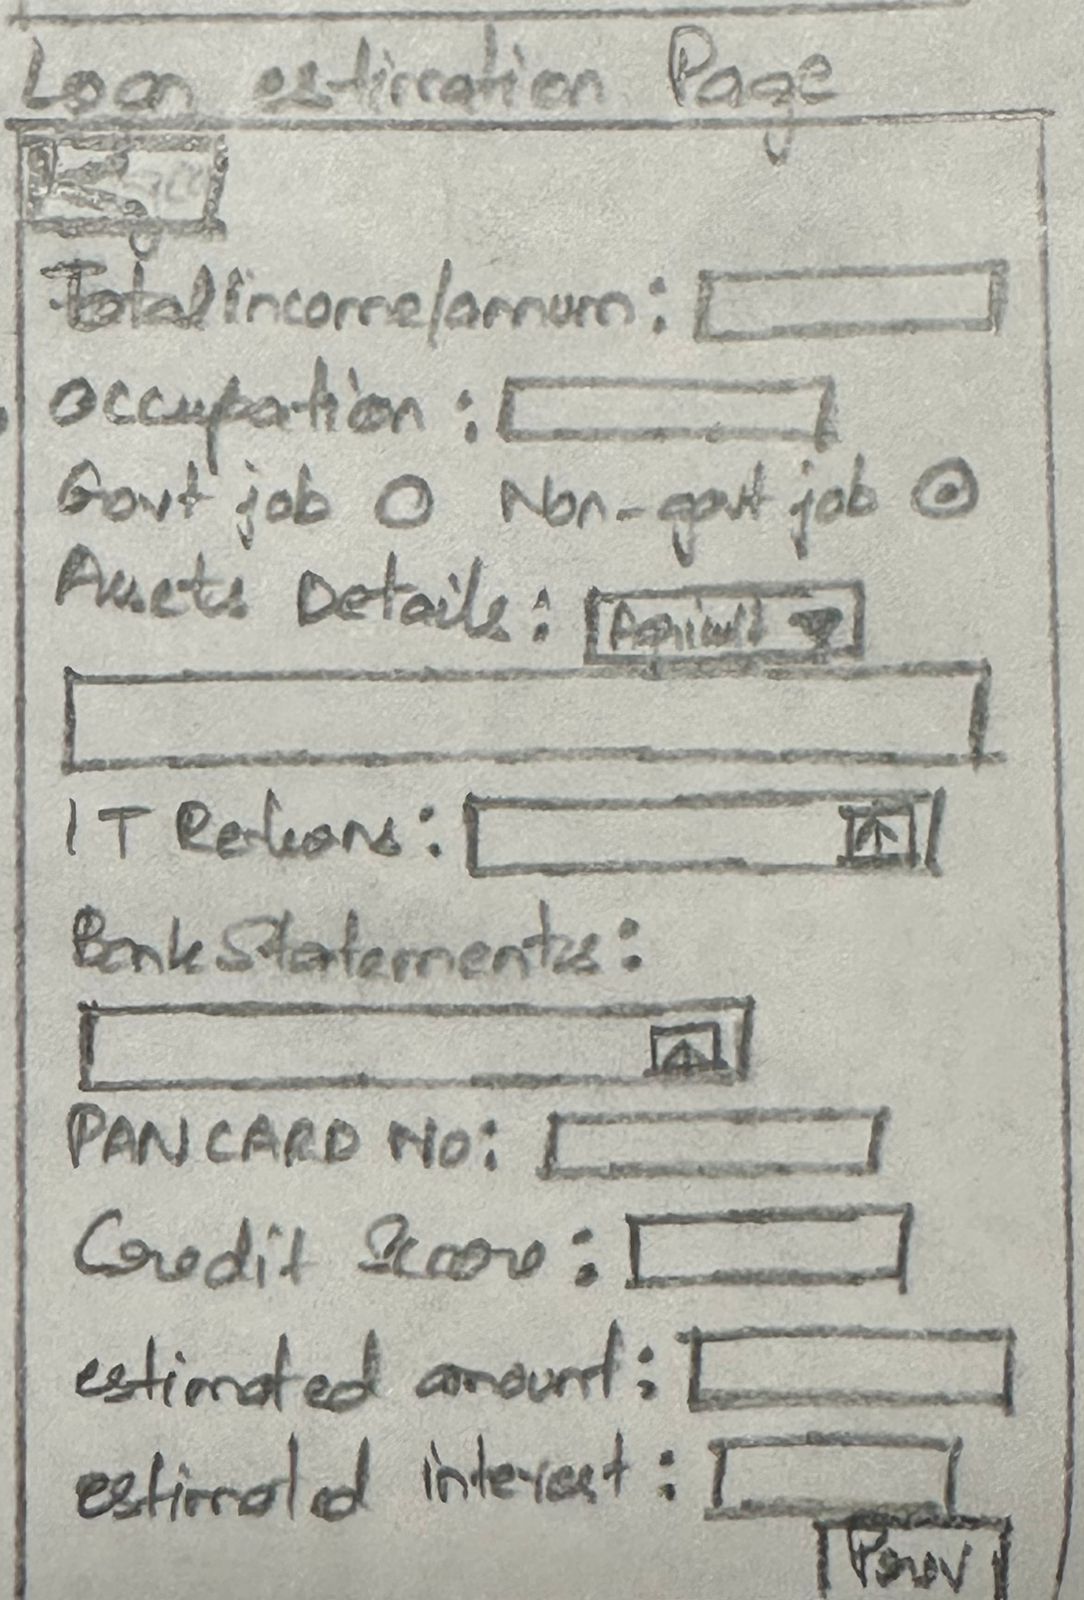 Loan estimation Page
Total income/annum:
occupation:
Govt job Non-govt job
Assets Details:
IT Returns:
Bank Statements:
PAN CARD NO:
Credit Score:
estimated amount:
estimated interest: